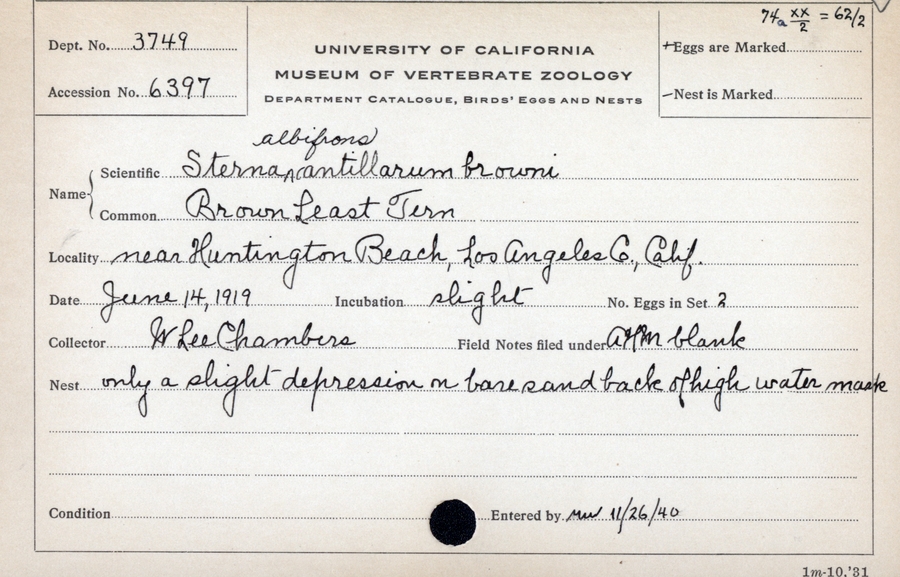 74a xx/2 = 62/2
Dept. No. 3749
UNIVERSITY OF CALIFORNIA
+Eggs are Marked
MUSEUM OF VERTEBRATE ZOOLOGY
Accession No. 6397
DEPARTMENT CATALOGUE, BIRDS' EGGS AND NESTS
—Nest is Marked
albifrons
Name { Scientific Sterna ^ antillarum browni
Common Brown Least Tern
Locality near Huntington Beach, Los Angeles Co., Calif.
Date June 14, 1919 Incubation slight No. Eggs in Set 2
Collector W Lee Chambers Field Notes filed under AHM blank
Nest only a slight depression on bare sand back of high water mark
Condition Entered by MW 11/26/40
1m-10,'31